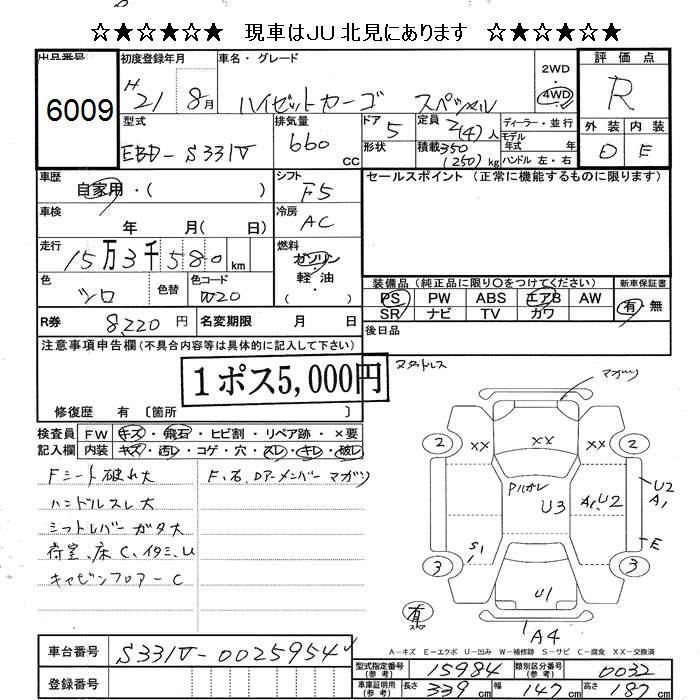 ☆★☆★☆★ 現車はJU北見にあります ☆★☆★☆★
出品番号 初度登録年月 車名・グレード 2WD 評価点
6009 H21 8月 ハイゼットカーゴ スペシャル 4WD R
型式 排気量 ドア 定員 ディーラー・並行 外装 内装
EBD-S331V 660cc 5 2(4)人 モデル年式 年式 D E
形状 積載 350(250)kg ハンドル 左・右
車歴 シフト セールスポイント (正常に機能するものに限ります)
自家用・( ) F5
車検 冷房
年 月( 日) AC
走行 燃料
15万3千580km ガソリン・軽油・( )
色 色替 色コード 装備品(純正品に限り○をつけてください) 新車保証書
シロ W20 PS PW ABS エアB AW 有・無
SR ナビ TV カワ
R券 8,220円 名変期限 月 日 後日品
注意事項申告欄(不具合内容等は具体的に記入して下さい) スタッドレス
1ポス5,000円
修復歴 有〔箇所 〕
検査員 FW キズ・飛石・ヒビ割・リペア跡・×要
記入欄 内装 キズ・汚レ・コゲ・穴・スレ・キレ・破レ
Fシート破れ大 F、右、Dアーメンバー マガリ
ハンドルスレ大
シフトレバー ガタ大
荷室、床C、イタミ、U
キャビンフロアーC
マガリ
2 XX XX XX 2
Pハガレ U3 A1、U2 U2 A1
E
3 S1 3
U1
有 スペア
A4
A−キズ E−エクボ U−凹み W−補修跡 S−サビ C−腐食 XX−交換済
車台番号 S331V-0025954
型式指定番号(参考) 15984 類別区分番号(参考) 0032
登録番号
車庫証明用(参考) 長さ 339cm 幅 147cm 高さ 187cm